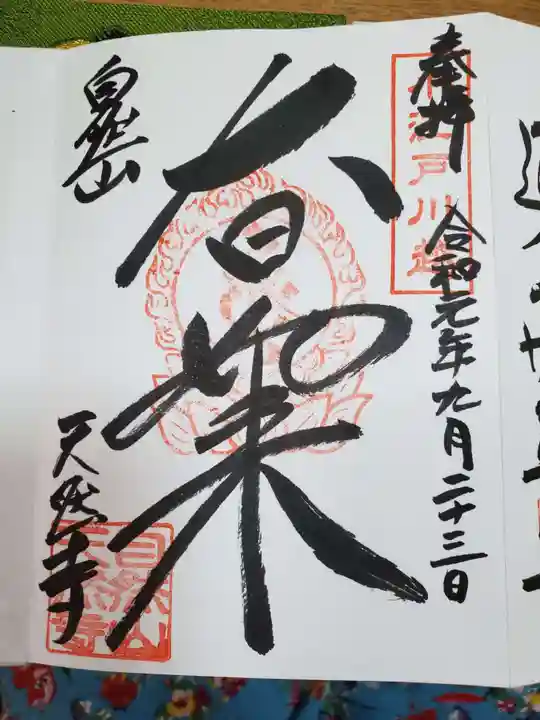 奉拝
小江戸川越
令和元年九月二十三日
大日如来
自然山
天然寺
自然山
天然寺